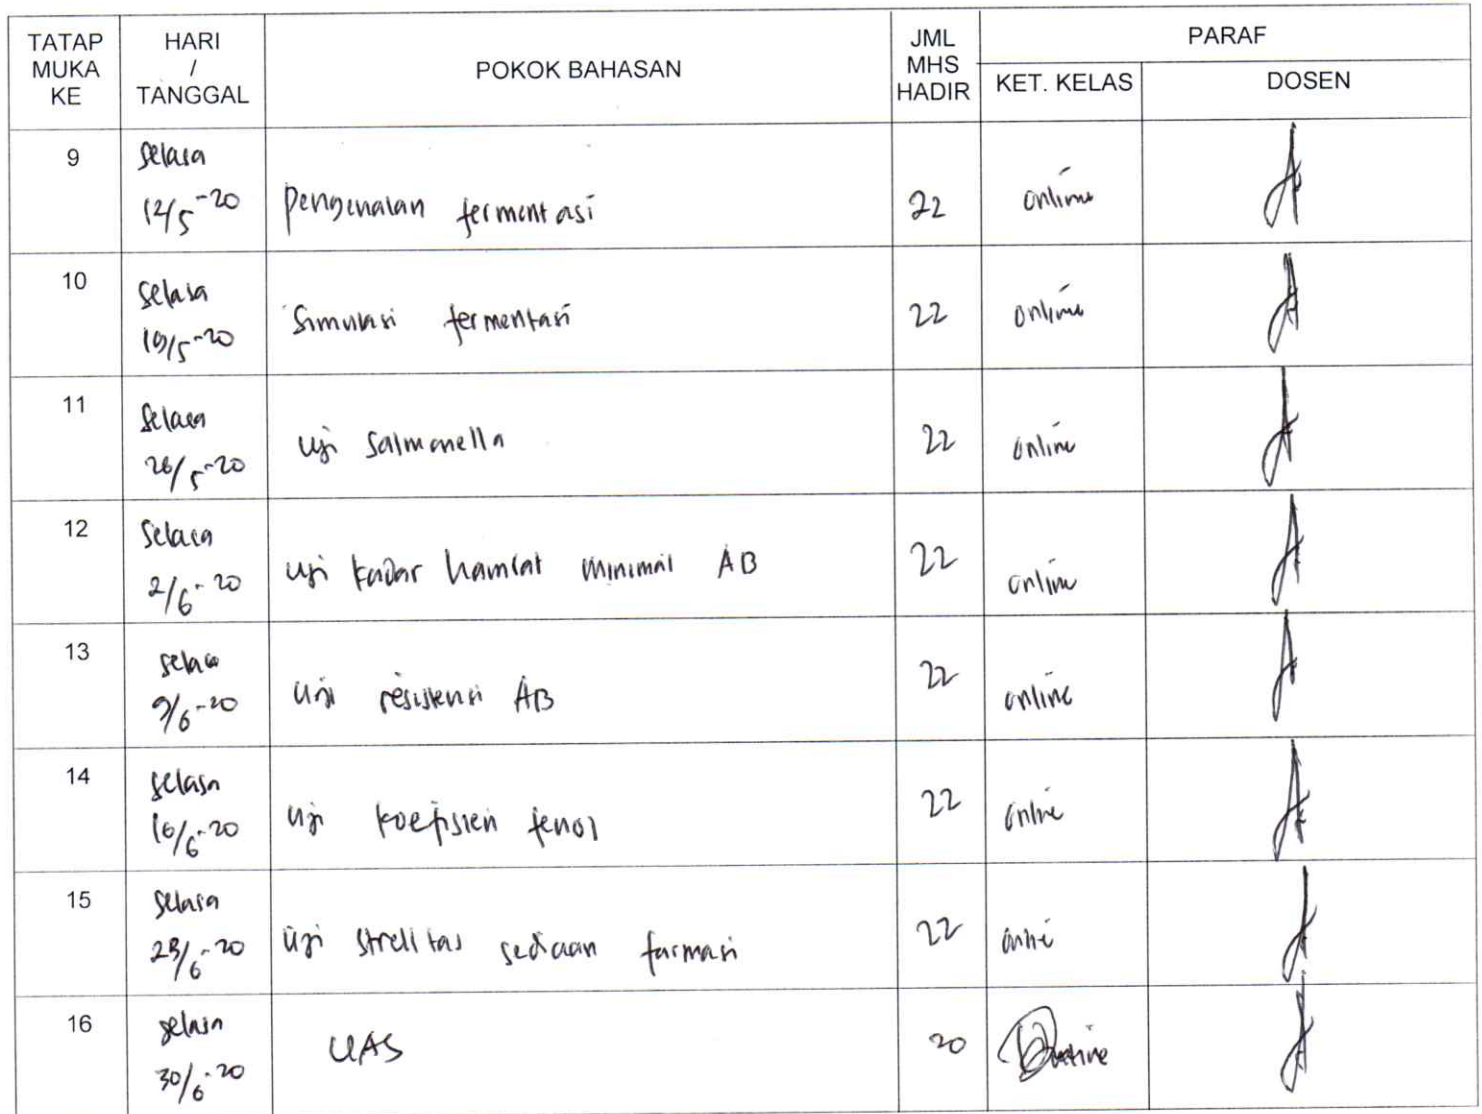 TATAP MUKA KE | HARI / TANGGAL | POKOK BAHASAN | JML MHS HADIR | PARAF
KET. KELAS | DOSEN
9 | Selasa 12/5-20 | Pengenalan fermentasi | 22 | online
10 | Selasa 19/5-20 | Simulasi fermentasi | 22 | online
11 | Selasa 26/5-20 | Uji Salmonella | 22 | online
12 | Selasa 2/6-20 | Uji kadar hambat minimal AB | 22 | online
13 | Selasa 9/6-20 | Uji resistensi AB | 22 | online
14 | Selasa 16/6-20 | Uji koefisien fenol | 22 | online
15 | Selasa 23/6-20 | Uji strelitas sediaan farmasi | 22 | online
16 | Selasa 30/6-20 | UAS | 20